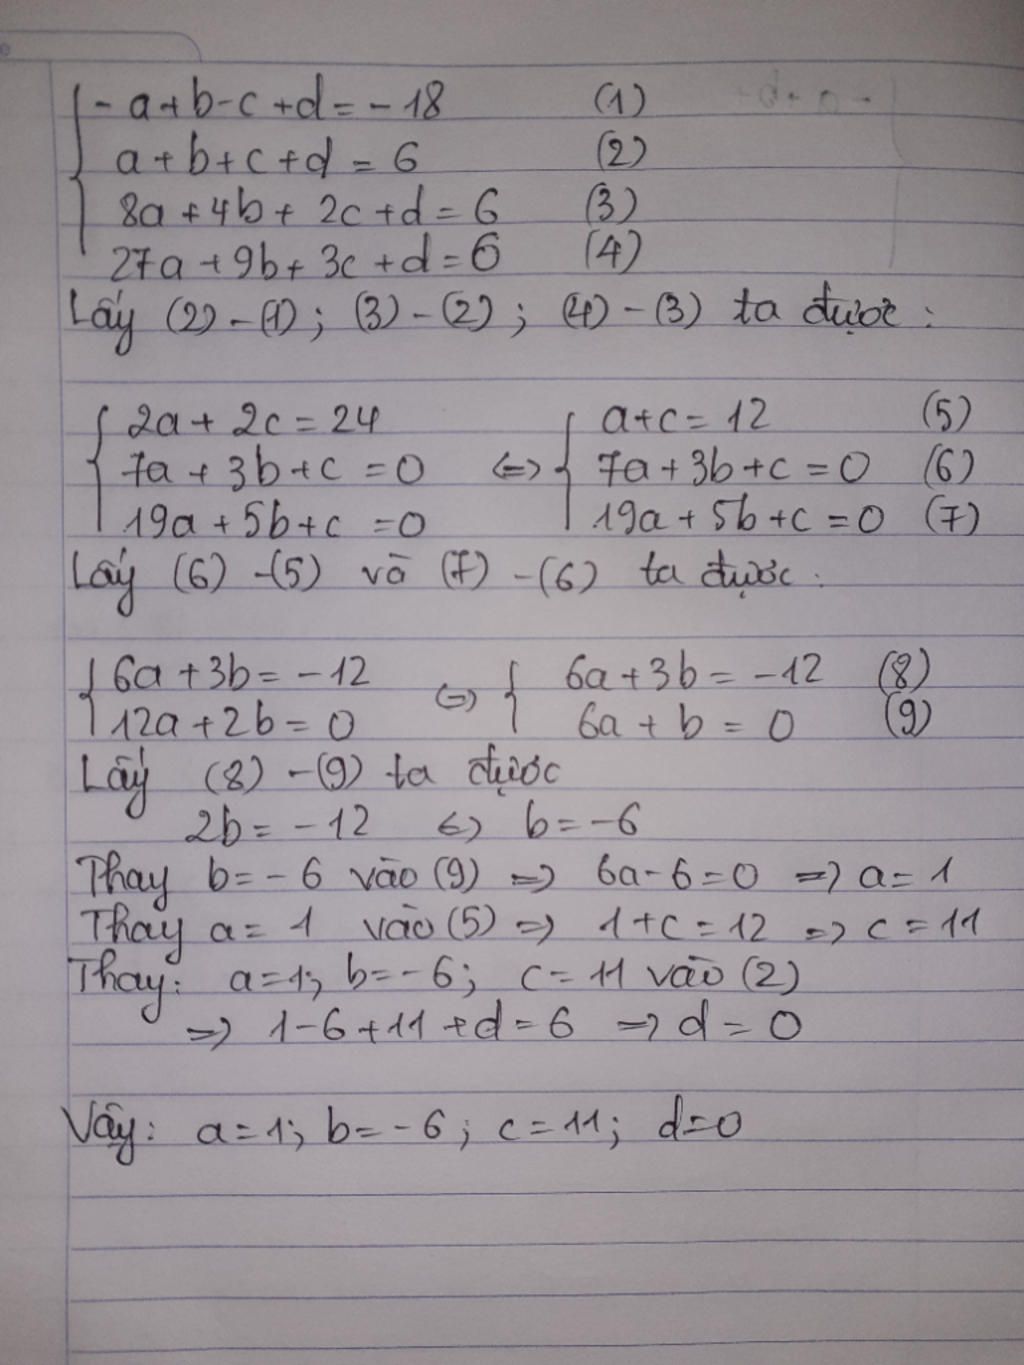 - a + b - c + d = - 18 (1)
a + b + c + d = 6 (2)
8a + 4b + 2c + d = 6 (3)
27a + 9b + 3c + d = 6 (4)
Lấy (2) - (1) ; (3) - (2) ; (4) - (3) ta được :
2a + 2c = 24 a + c = 12 (5)
7a + 3b + c = 0 <=> 7a + 3b + c = 0 (6)
19a + 5b + c = 0 19a + 5b + c = 0 (7)
Lấy (6) - (5) và (7) - (6) ta được :
6a + 3b = - 12 6a + 3b = - 12 (8)
12a + 2b = 0 <=> 6a + b = 0 (9)
Lấy (8) - (9) ta được
2b = - 12 <=> b = - 6
Thay b = - 6 vào (9) => 6a - 6 = 0 => a = 1
Thay a = 1 vào (5) => 1 + c = 12 => c = 11
Thay : a = 1 ; b = - 6 ; c = 11 vào (2)
=> 1 - 6 + 11 + d = 6 => d = 0
Vậy : a = 1 ; b = - 6 ; c = 11 ; d = 0